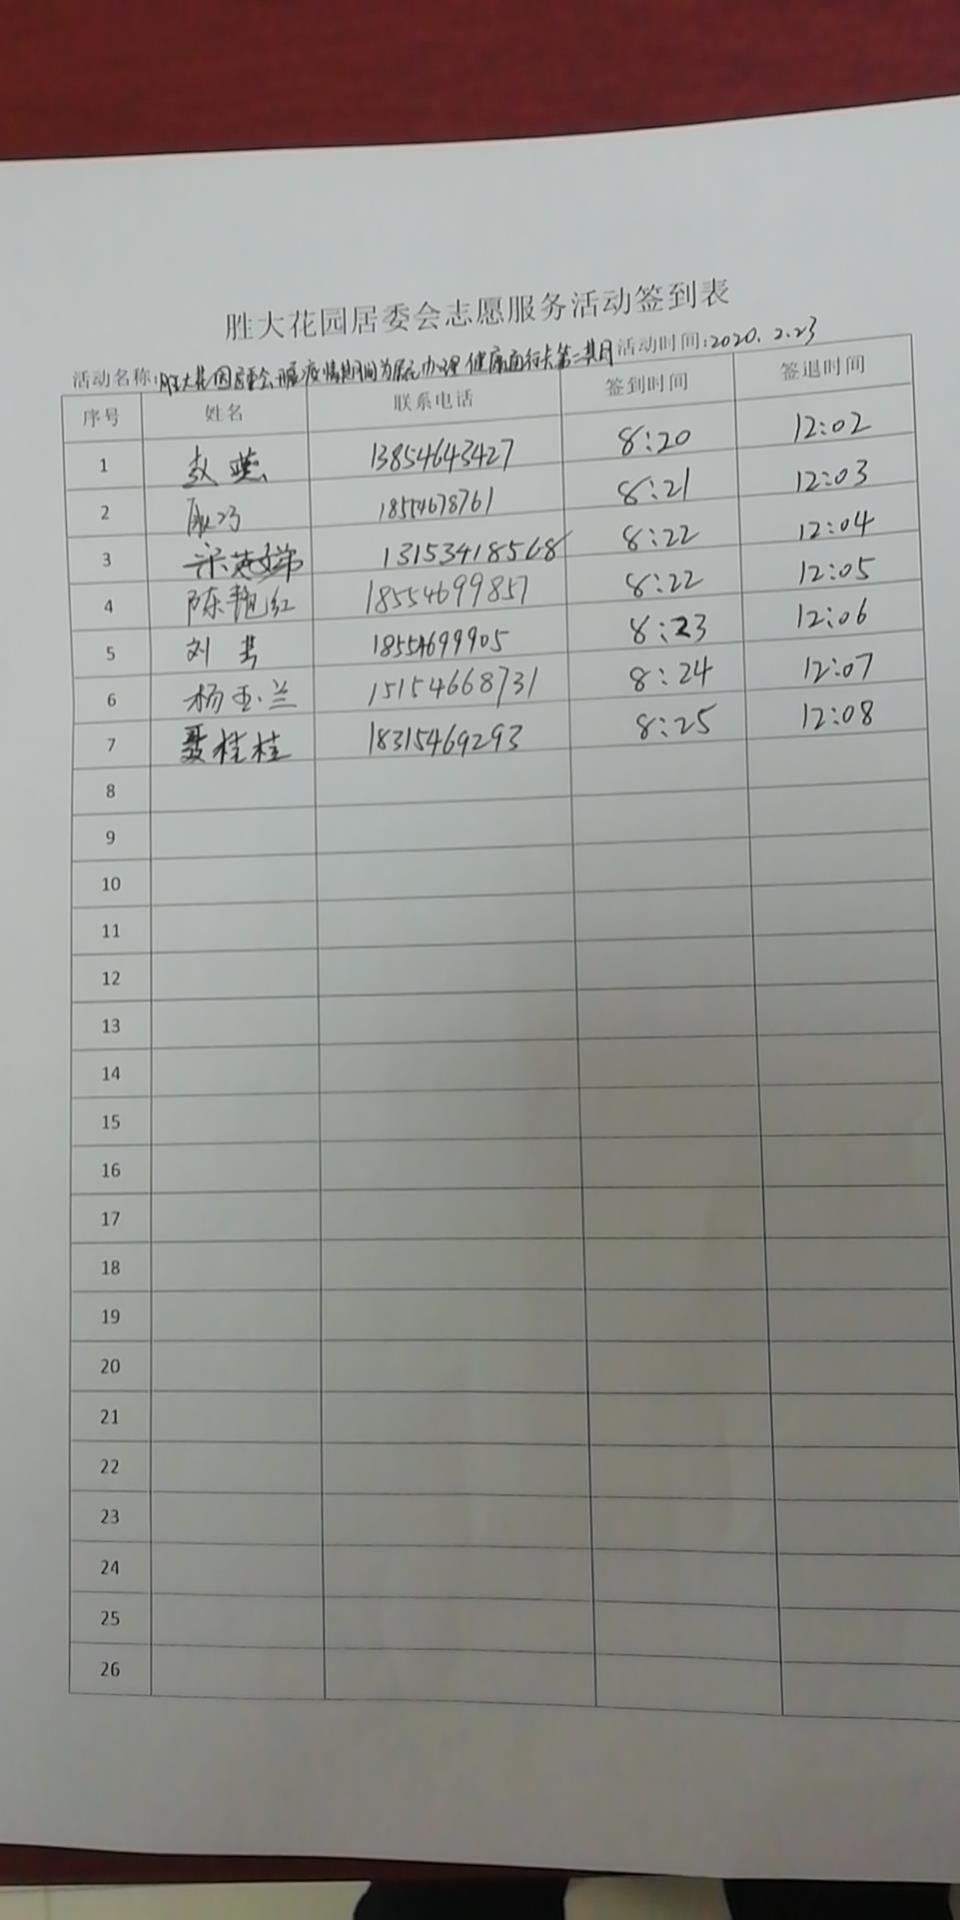 胜大花园居委会志愿服务活动签到表
活动名称:胜大花园居委会疫情期间为居民办理健康通行卡第二其月 活动时间:2020.2.23
序号 姓名 联系电话 签到时间 签退时间
1 赵燕 13854643427 8:20 12:02
2 18554678761 8:21 12:03
3 宋英娣 13153418568 8:22 12:04
4 陈艳红 18554699857 8:22 12:05
5 刘 18554699905 8:23 12:06
6 杨玉兰 15154668731 8:24 12:07
7 聂桂桂 18315469293 8:25 12:08
8
9
10
11
12
13
14
15
16
17
18
19
20
21
22
23
24
25
26